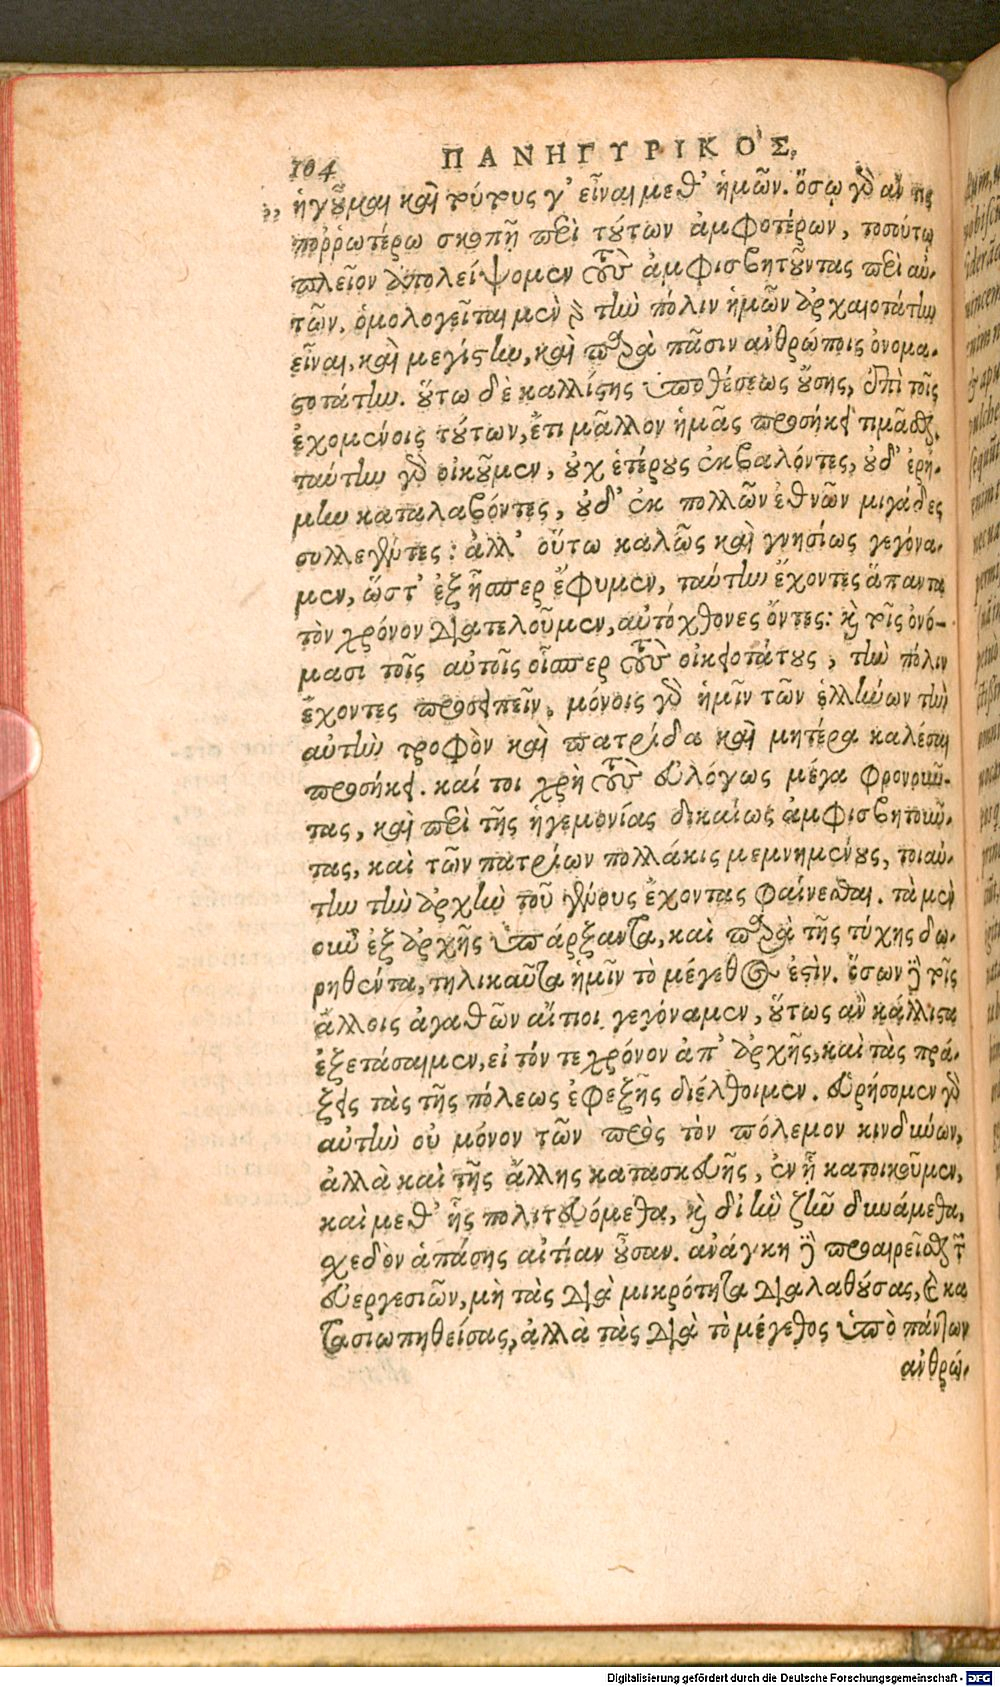 104 ΠΑΝΗΓΥΡΙΚΟΣ.
ἡγοῦμαι καὶ τούτους γ' εἶναι μεθ' ἡμῶν. ὅσῳ γὰρ ἄν τις
πορῥωτέρω σκοπῇ περὶ τούτων ἀμφοτέρων, τοσούτῳ
πλεῖον ἀπολείψομεν τοὺς ἀμφισβητοῦντας περὶ αὐ-
τῶν. ὁμολογεῖται μὲν γὰρ τὴν πόλιν ἡμῶν ἀρχαιοτάτην
εἶναι, καὶ μεγίστην, καὶ παρὰ πᾶσιν ἀνθρώποις ὀνομα-
στοτάτην. οὕτω δὲ καλλίστης ὑποθέσεως οὔσης, ἐπὶ τοῖς
ἐχομένοις τούτων, ἔτι μᾶλλον ἡμᾶς προσήκει τιμᾶσθαι.
ταύτην γὰρ οἰκοῦμεν, οὐχ ἑτέρους ἐκβαλόντες, οὐδ' ἐρή-
μην καταλαβόντες, οὐδ' ἐκ πολλῶν ἐθνῶν μιγάδες
συλλεγέντες: ἀλλ' οὕτω καλῶς καὶ γνησίως γεγόνα-
μεν, ὥστ' ἐξ ἧσπερ ἔφυμεν, ταύτην ἔχοντες ἅπαντα
τὸν χρόνον διατελοῦμεν, αὐτόχθονες ὄντες: καὶ τοῖς ὀνό-
μασι τοῖς αὐτοῖς οἷσπερ τοὺς οἰκειοτάτους, τὴν πόλιν
ἔχοντες προσειπεῖν. μόνοις γὰρ ἡμῖν τῶν ἑλλήνων τὴν
αὐτὴν τροφὸν καὶ πατρίδα καὶ μητέρα καλέσαι
προσήκει. καί τοι χρὴ τοὺς εὐλόγως μέγα φρονοῦν-
τας, καὶ περὶ τῆς ἡγεμονίας δικαίως ἀμφισβητοῦν-
τας, καὶ τῶν πατρίων πολλάκις μεμνημένους, τοιαύ-
την τὴν ἀρχὴν τοῦ γένους ἔχοντας φαίνεσθαι. τὰ μὲν
οὖν ἐξ ἀρχῆς ὑπάρξαντα, καὶ παρὰ τῆς τύχης δω-
ρηθέντα, τηλικαῦτα ἡμῖν τὸ μέγεθος ἐστίν. ὅσων δὲ τοῖς
ἄλλοις ἀγαθῶν αἴτιοι γεγόναμεν, οὕτως ἂν κάλλιστα
ἐξετάσαιμεν, εἰ τόν τε χρόνον ἀπ' ἀρχῆς, καὶ τὰς πρά-
ξεις τὰς τῆς πόλεως ἐφεξῆς διέλθοιμεν. εὑρήσομεν γὰρ
αὐτὴν οὐ μόνον τῶν πρὸς τὸν πόλεμον κινδύνων,
ἀλλὰ καὶ τῆς ἄλλης κατασκευῆς, ἐν ᾗ κατοικοῦμεν,
καὶ μεθ' ἧς πολιτευόμεθα, καὶ δι' ἣν ζῆν δυνάμεθα,
σχεδὸν ἁπάσης αἰτίαν οὖσαν. ἀνάγκη δὲ προαιρεῖσθαι τῶν
εὐεργεσιῶν, μὴ τὰς διὰ μικρότητα διαλαθούσας, καὶ κα
τασιωπηθείσας, ἀλλὰ τὰς διὰ τὸ μέγεθος ὑπὸ πάντων
ἀνθρώ-
Digitalisierung gefördert durch die Deutsche Forschungsgemeinschaft - DFG